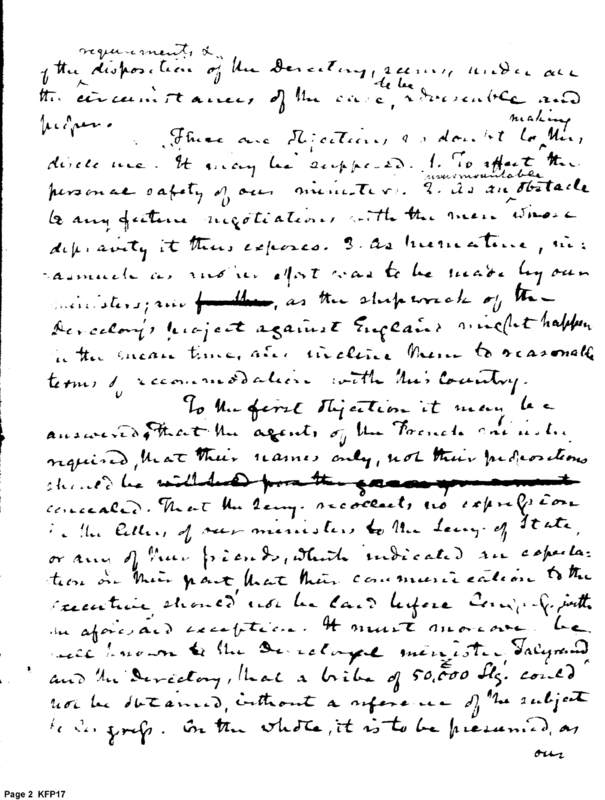 requirements &
of the disposition of the Directory, seems, under all
the circumstances of the case, to be adviseable and
proper.
There are objections no doubt to making this
disclosure. It may be supposed. 1. To affect the
personal safety of our ministers. 2. As an insurmountable obstacle
to any future negotiations with the men whose
depravity it thus exposes. 3. As premature, in-
asmuch as another effort was to be made by our
ministers; and further, as the shipwreck of the
Directory's project against England might happen
in the mean time, and incline them to reasonable
terms of accommodation with this Country.
To the first objection it may be
answered, that the agents of the French minister
required, that their names only, not their propositions
should be withheld from the
concealed. That the Secy. recollects no expression
in the letters of our ministers to the Secy. of State,
or any of their friends, which indicated an expecta-
tion on their part, that their communication to the
Executive should not be laid before Congress, with
the aforesaid exception. It must moreover be
well known to the French minister, Talyrand
and the Directory, that a bribe of 50,000 £ Stg. could
not be obtained, without a reference of the subject
to Congress. On the whole, it is to be presumed, as
our
Page 2 KFP17